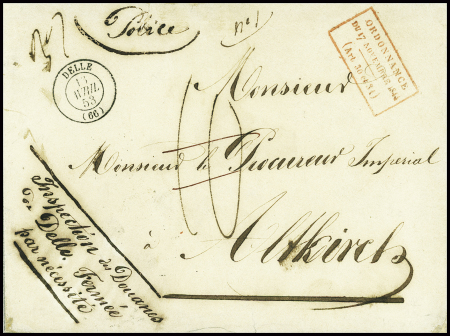 Police
n° 1
DELLE
13
AVRIL
53
(66)
ORDONNANCE
DU 17 NOVEMBRE 1844
Monsieur
10
Monsieur le Procureur Impérial
à Altkirch
Inspection des Douanes
de Delle, Fermée
par nécessité